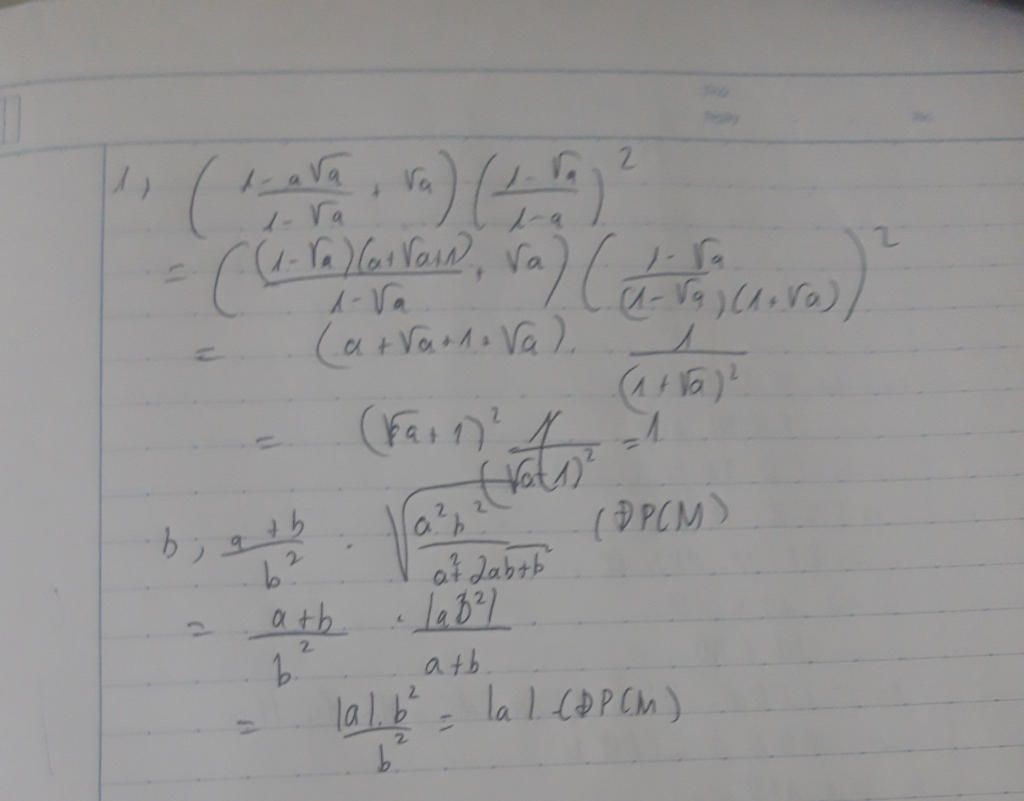 1, ( (1-a√a)/(1-√a) + √a ) ( (1-√a)/(1-a) )²
= ( ((1-√a)(a+√a+1))/(1-√a) + √a ) ( (1-√a)/((1-√a)(1+√a)) )²
= (a+√a+1+√a). 1/(1+√a)²
= (√a+1)² 1/(√a+1)² = 1
b, (a+b)/b² . √( a²b²/(a²+2ab+b²) ) (ĐPCM)
= (a+b)/b² . |ab²|/(a+b)
= |a|.b²/b² = |a|. (ĐPCM)